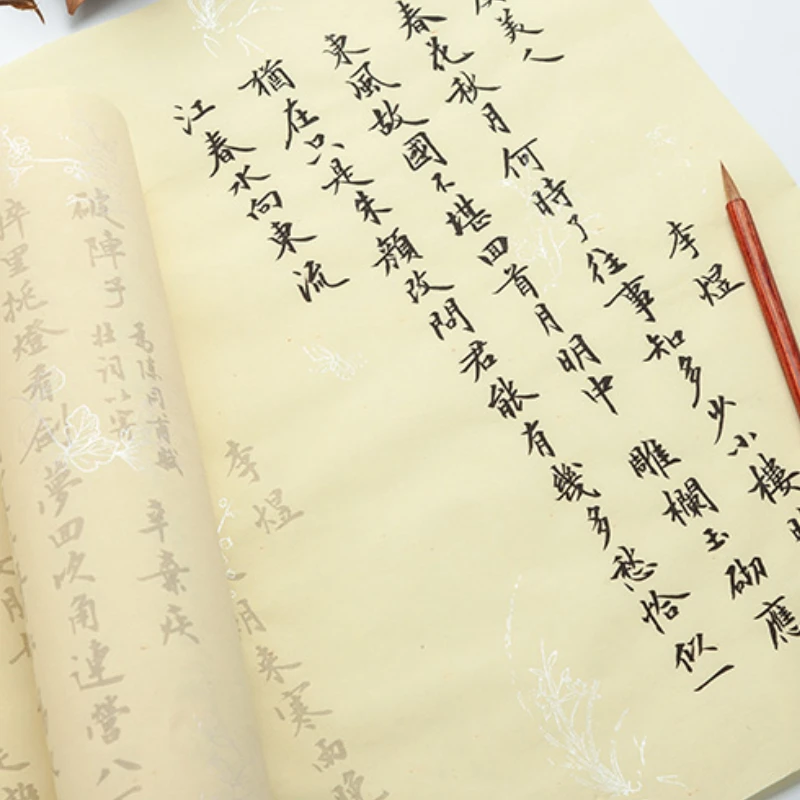 美人
李煜
春花秋月何時了往事知多少小樓
東風故國不堪回首月明中雕欄玉砌應
猶在只是朱顏改問君能有幾多愁恰似一
江春水向東流
李煜
朝来寒雨晚
破陣子
為陳同甫賦
壯詞以寄
辛棄疾
醉里挑燈看劍夢回吹角連營八